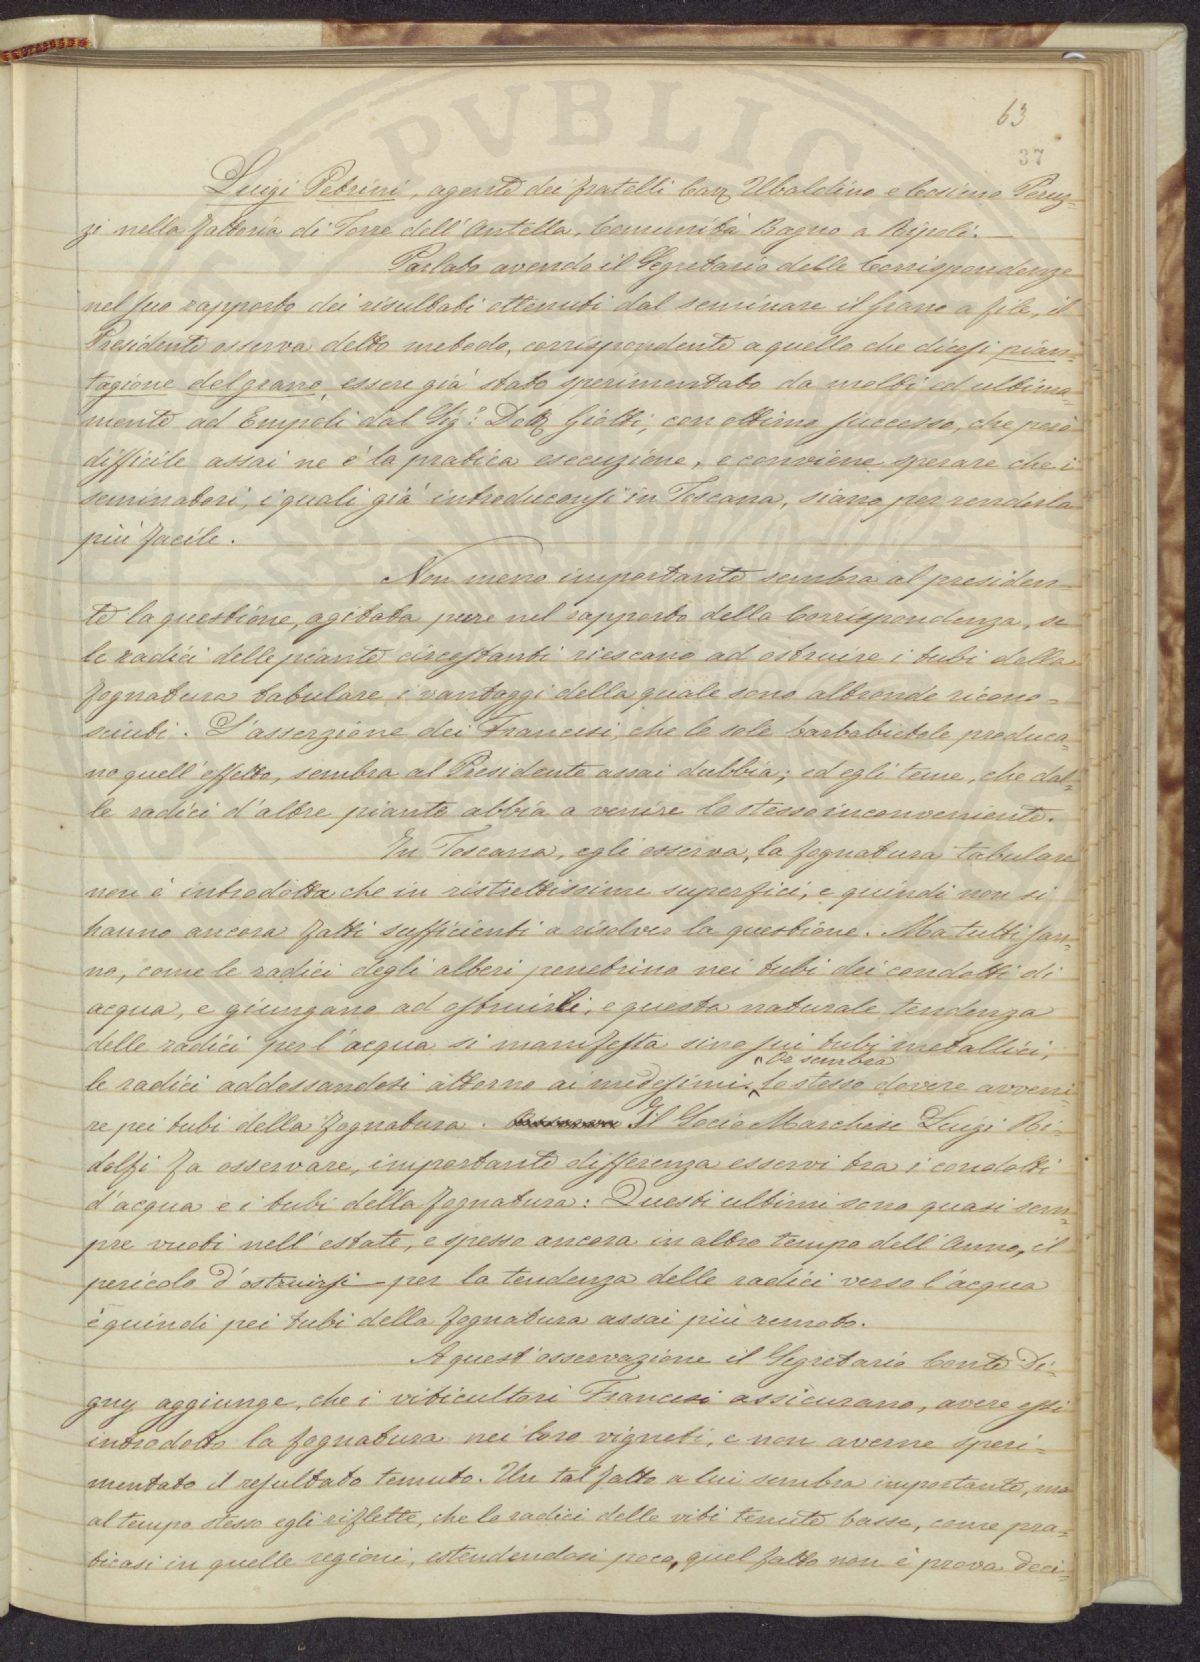 63
37
PVBLIC
Luigi Petrini, agente dei fratelli Cav. Ubaldino e Cosimo Peruz-
zi nella fattoria di Torre dell'Antella, Comunità Bagno a Ripoli.
Parlato avendo il Segretario delle Corrispondenze
nel suo rapporto dei risultati ottenuti dal seminare il grano a file, il
Presidente osserva detto metodo, corrispondente a quello che dicesi pian-
tagione del grano, essere già stato sperimentato da molti ed ultima-
mente ad Empoli dal Sig.r Dott. Giotti, con ottimo successo, che però
difficile assai ne è la pratica esecuzione, e conviene sperare che i
seminatori, i quali già introduconsi in Toscana, siano per renderla
più facile.
Non meno importante sembra al presiden-
te la questione, agitata pure nel rapporto della Corrispondenza, se
le radici delle piante circostanti riescano ad ostruire i tubi della
fognatura tabulare, i vantaggi della quale sono altronde ricono-
sciuti. L'asserzione dei Francesi, che le sole barbabietole produca-
no quell'effetto, sembra al Presidente assai dubbia; ed egli teme, che dal-
le radici d'altre piante abbia a venire lo stesso inconveniente.
In Toscana, egli osserva, la fognatura tabulare
non è introdotta che in ristrettissime superfici, e quindi non si
hanno ancora fatti sufficienti a risolver la questione. Ma tutti san-
no, come le radici degli alberi penetrino nei tubi dei condotti di
acqua, e giungano ad ostruirli, e questa naturale tendenza
delle radici per l'acqua si manifesta sino sui tubi metallici,
Or sembra
le radici addossandosi attorno ai medesimi. lo stesso dovere avveni-
re pei tubi della fognatura. Il Socio Marchese Luigi Ri-
dolfi fa osservare, importante differenza esservi tra i condotti
d'acqua e i tubi della fognatura: Questi ultimi sono quasi sem-
pre vuoti nell'estate, e spesso ancora in altro tempo dell'Anno, il
pericolo d'ostruirsi per la tendenza delle radici verso l'acqua
è quindi pei tubi della fognatura assai più remoto.
A quest'osservazione il Segretario Conte De-
gny aggiunge, che i viticultori Francesi assicurano, avere essi
introdotto la fognatura nei loro vigneti, e non averne speri-
mentato il resultato temuto. Un tal fatto a lui sembra importante, ma
al tempo stesso egli riflette, che le radici delle viti tenute basse, come pra-
ticasi in quelle regioni, estendendosi poco, quel fatto non è prova deci-